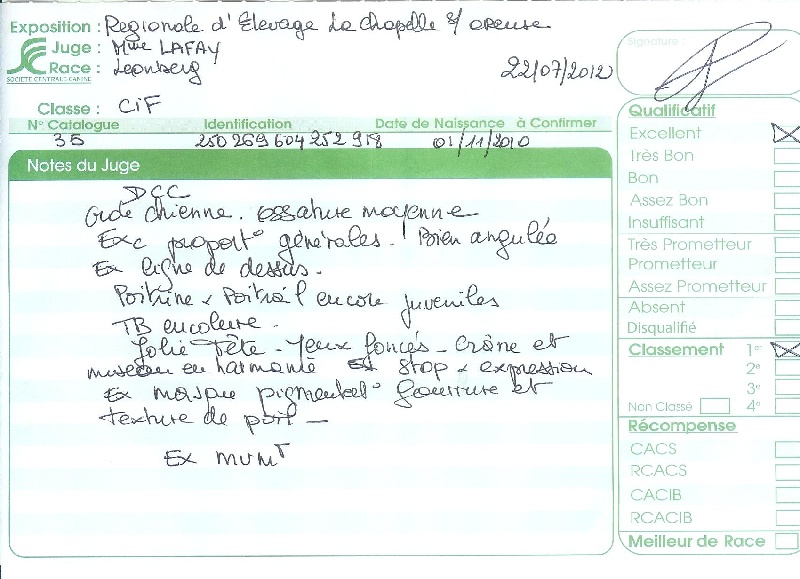 Exposition : Regionale d'Elevage La Chapelle s/ oreuse
Juge : Mme LAFAY
Race : Leonberg
SOCIETE CENTRALE CANINE
22/07/2012
Signature :
Classe : CIF
N° Catalogue Identification Date de Naissance à Confirmer
35 250 269 604 252 918 01/11/2010
Notes du Juge
DCC
Grde chienne. Ossature moyenne
Exc proport° générales. Bien angulée
Ex ligne de dessus.
Poitrine & Poitrail encore juveniles
TB encolure.
Jolie Tête - Yeux foncés - Crâne et
museau en harmonie Ex Stop & expression
Ex masque pigmentat° fourrure et
texture de poil -
Ex mvmT
Qualificatif
Excellent
Très Bon
Bon
Assez Bon
Insuffisant
Très Prometteur
Prometteur
Assez Prometteur
Absent
Disqualifié
Classement 1er
2e
3e
Non Classé 4e
Récompense
CACS
RCACS
CACIB
RCACIB
Meilleur de Race